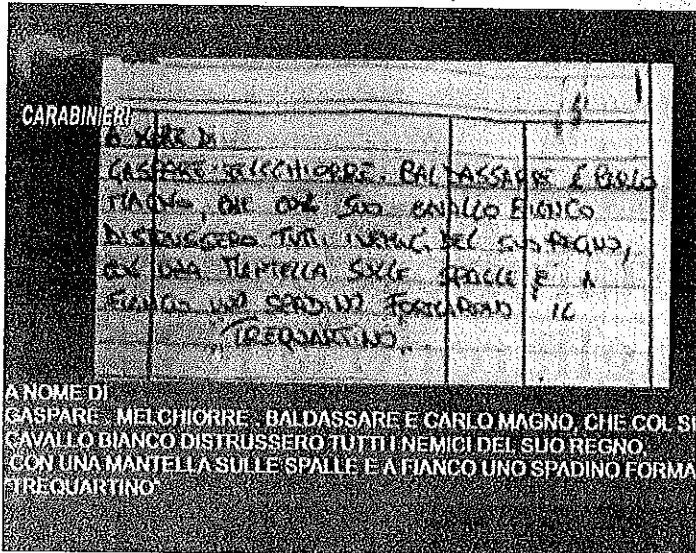 CARABINIERI
A NOME DI
GASPARE MELCHIORRE, BALDASSARRE E CARLO
MAGNO, CHE COL SUO CAVALLO BIANCO
DISTRUSSERO TUTTI I NEMICI DEL SUO REGNO,
CON UNA MANTELLA SULLE SPALLE E A
FIANCO UNO SPADINO FORMARONO IL
"TREQUARTINO"
A NOME DI
GASPARE , MELCHIORRE , BALDASSARE E CARLO MAGNO, CHE COL
CAVALLO BIANCO DISTRUSSERO TUTTI I NEMICI DEL SUO REGNO,
CON UNA MANTELLA SULLE SPALLE E A FIANCO UNO SPADINO FORMA
"TREQUARTINO"